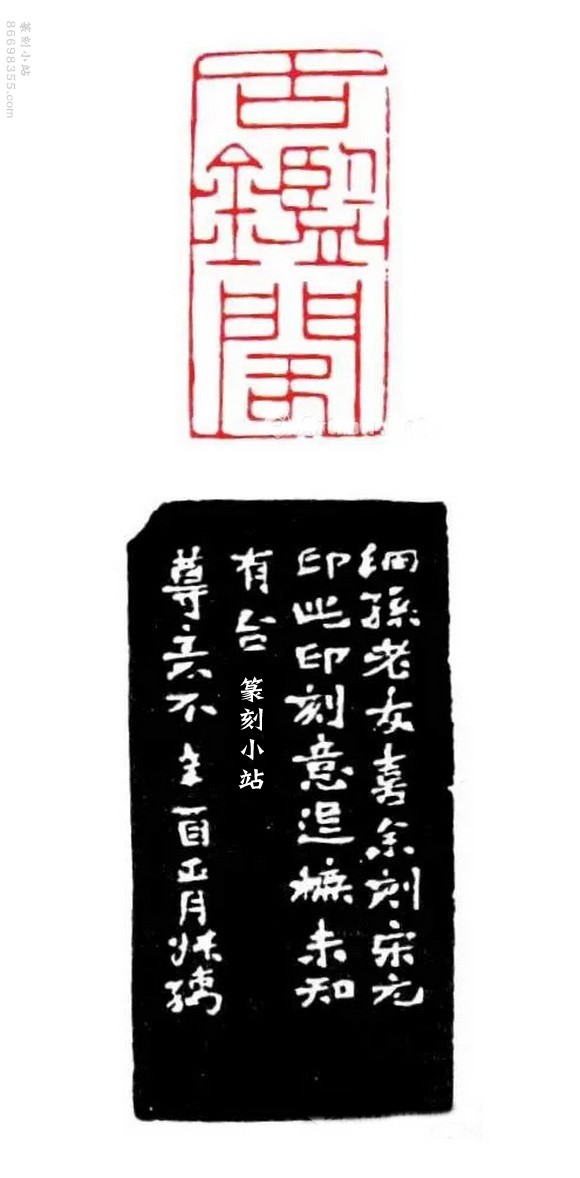 篆刻小站
86698355.com
古鑑閣
絅孫老友喜余刻宋元
印此印刻意追橅未知
有合
篆刻小站
尊意不辛酉正月叔孺